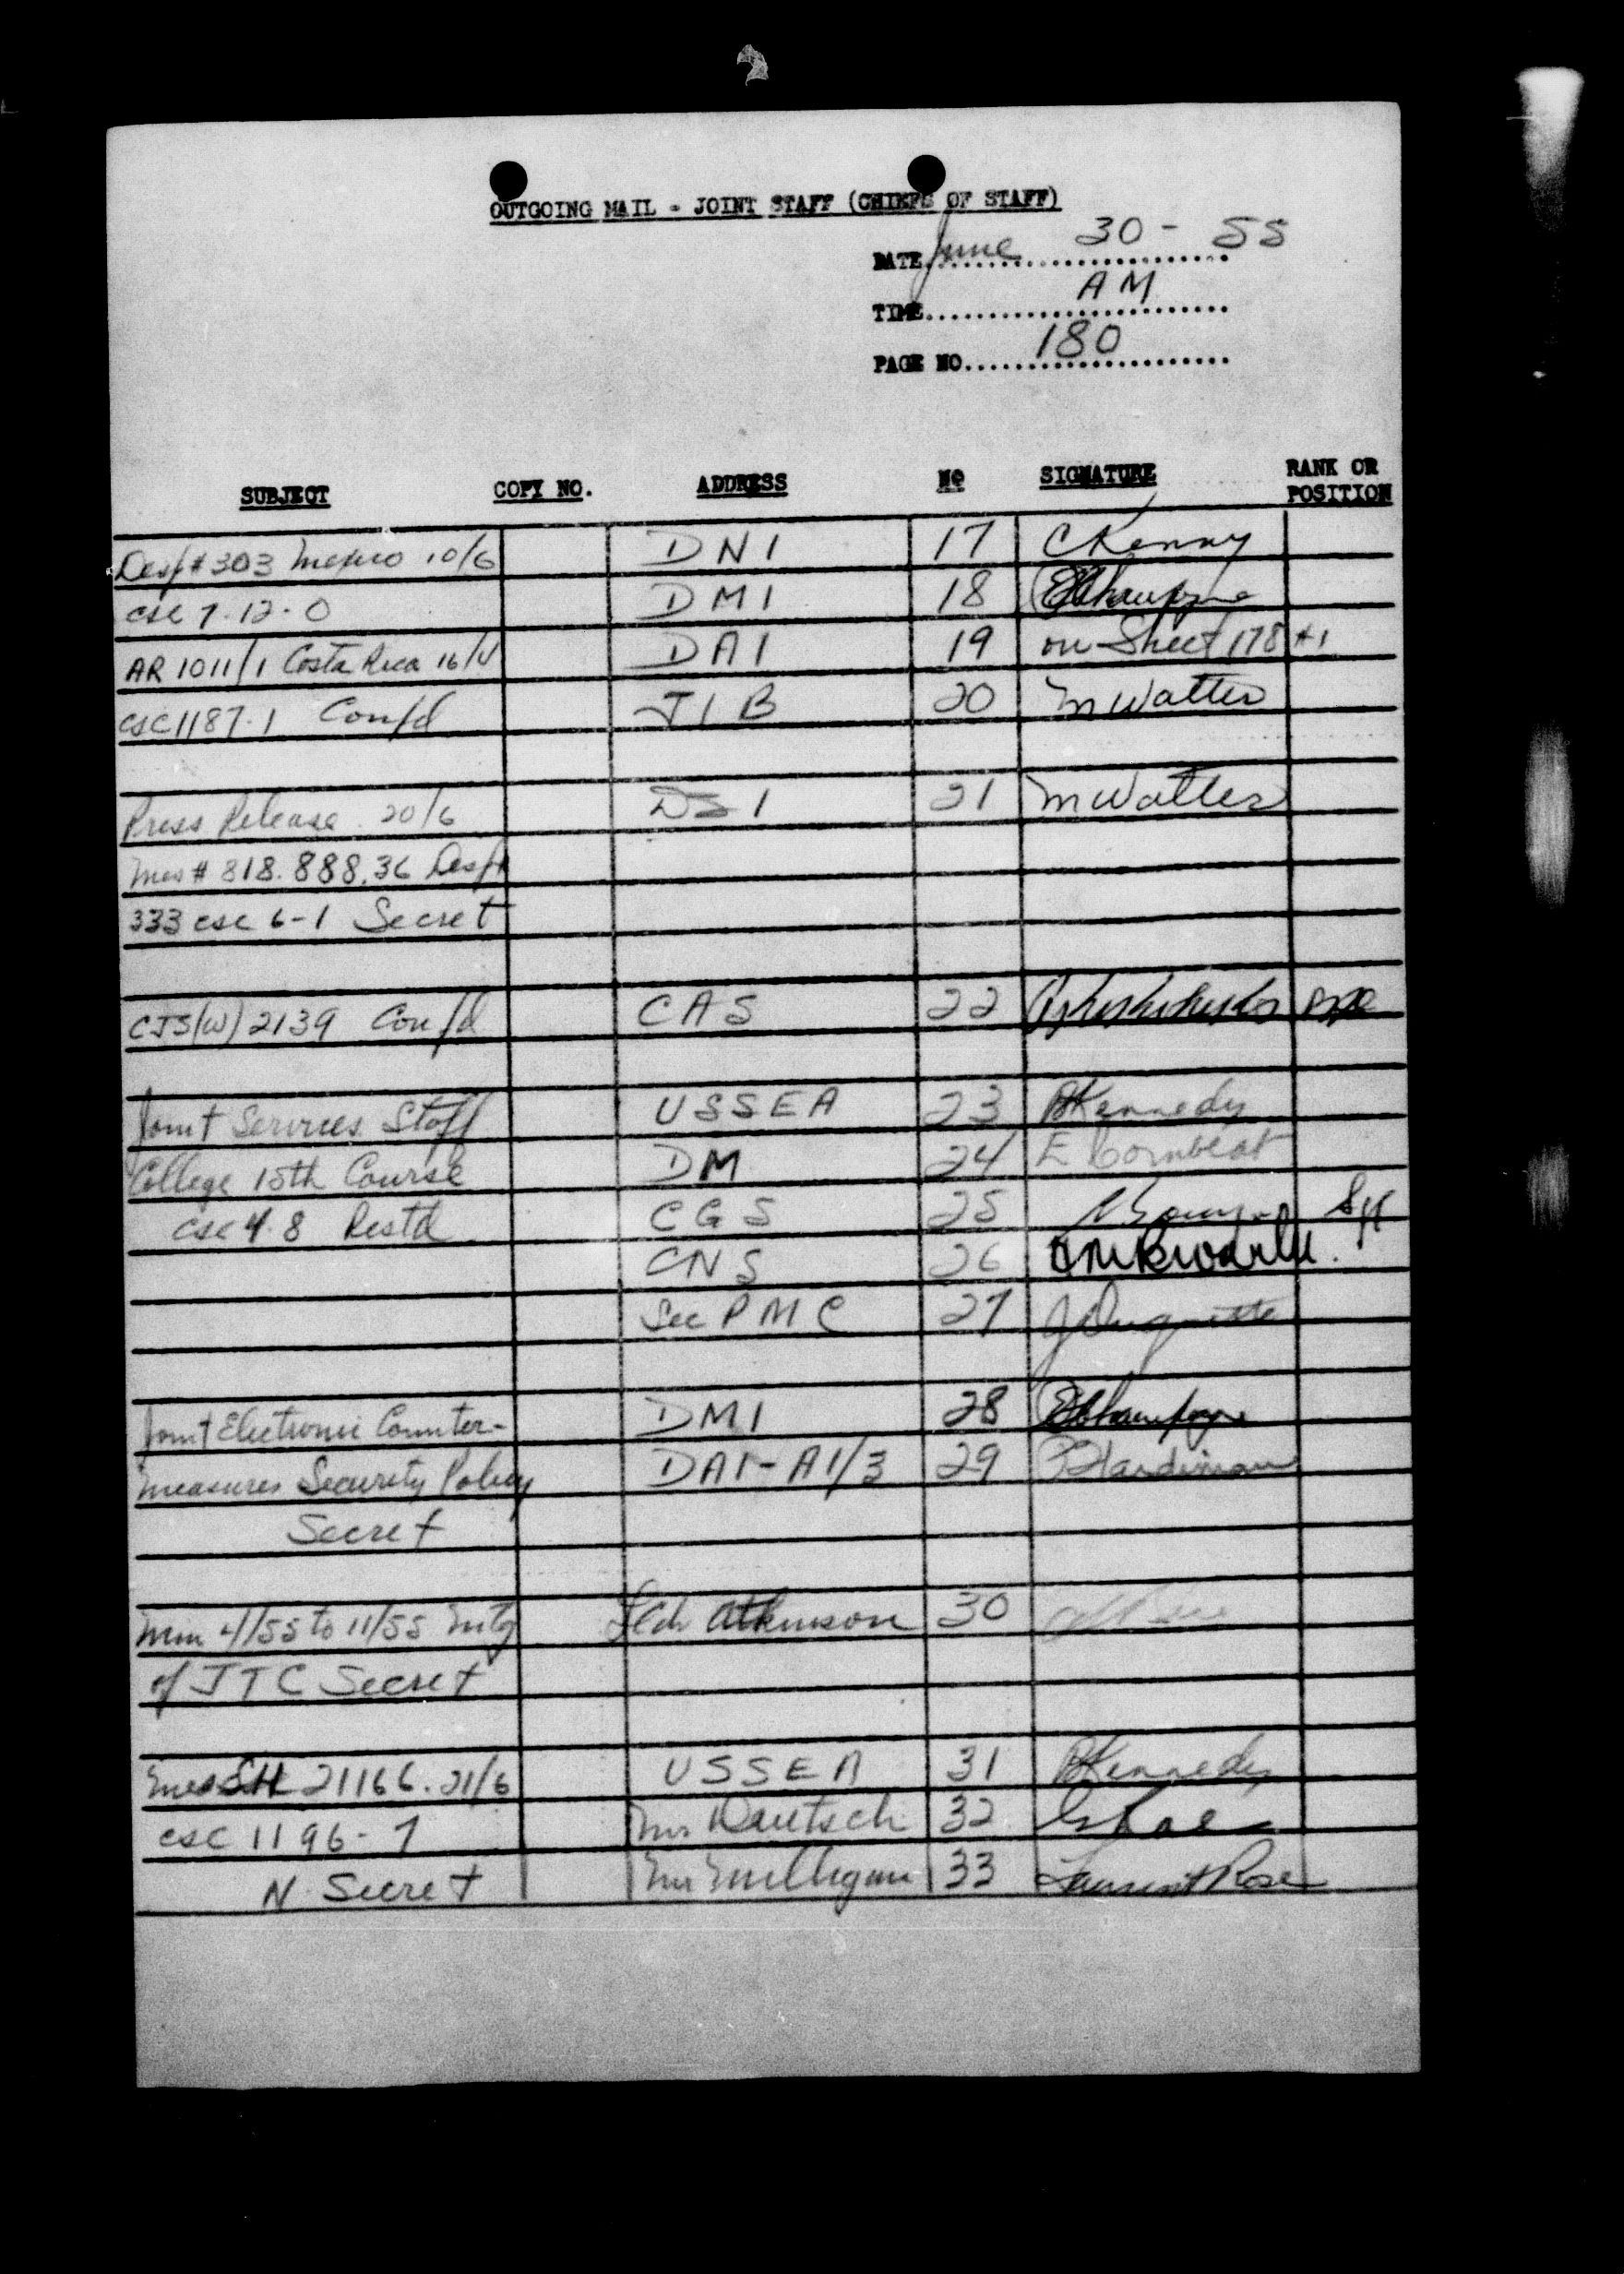 OUTGOING MAIL - JOINT STAFF (CHIEFS OF STAFF)
DATE June 30 - 55
TIME AM
PAGE NO. 180
SUBJECT COPY NO. ADDRESS No SIGNATURE RANK OR POSITION
Desp # 303 Mexico 10/6 DNI 17 C Kenny
csc 7-12-0 DMI 18
AR 1011/1 Costa Rica DAI 19 on Sheet 178 #1
csc 1187-1 Confd JIB 20 M Walters
Press Release 20/6 DSI 21 M Walters
Mes # 818. 888. 36 Desp
333 csc 6-1 Secret
CJS(W) 2139 Confd CAS 22
Joint Services Staff USSEA 23 Kennedy
College 15th Course DM 24 E
csc 4-8 Restd CGS 25
CNS 26
Sec PMC 27 J Duquette
Joint Electronic Counter- DMI 28
measures Security Policy DAI-AI/3 29 Hardiman
Secret
Min 4/55 to 11/55 mtg Atkinson 30
of JTC Secret
Mes 21166. 21/6 USSEA 31 Kennedy
csc 1196-7 Mr Deutsch 32
N. Secret Mr 33 Rose